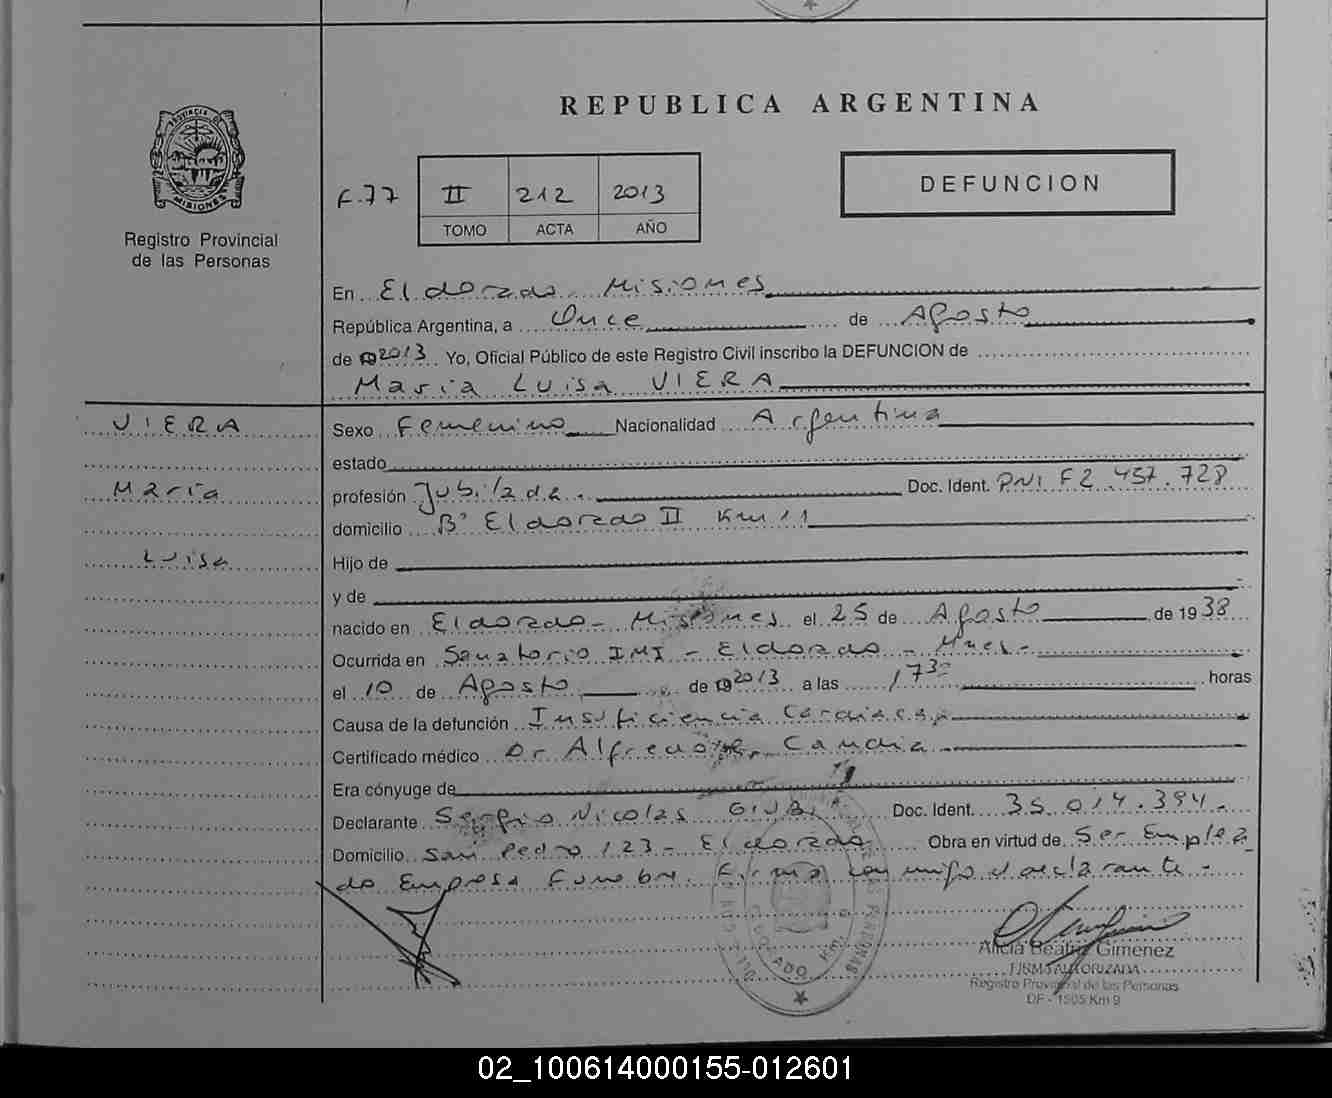 REPUBLICA ARGENTINA
PROVINCIA DE MISIONES
Registro Provincial
de las Personas
F.77 II 212 2013
TOMO ACTA AÑO
DEFUNCION
En Eldorado - Misiones
República Argentina, a Once de Agosto
de 2013 Yo, Oficial Público de este Registro Civil inscribo la DEFUNCION de
Maria Luisa VIERA
VIERA
Maria
Luisa
Sexo Femenino Nacionalidad Argentina
estado
profesión Jubilada. Doc. Ident. DNI F2.457.728
domicilio B° Eldorado II Km 11
Hijo de
y de
nacido en Eldorado - Misiones el 25 de Agosto de 1938
Ocurrida en Sanatorio IMI - Eldorado - Mnes -
el 10 de Agosto de 2013 a las 17 30 horas
Causa de la defunción Insuficiencia Cardiaca
Certificado médico Dr Alfredo Candia
Era cónyuge de
Declarante Sergio Nicolas Doc. Ident. 35.014.394.
Domicilio San Pedro 123 - Eldorado Obra en virtud de Ser Emplea
do Empresa Funebre. Firma conmigo el declarante -
Alicia Beatriz Gimenez
FIRMA AUTORIZADA
Registro Provincial de las Personas
DF - 1505 Km 9
ELDORADO Km. 9
02_100614000155-012601